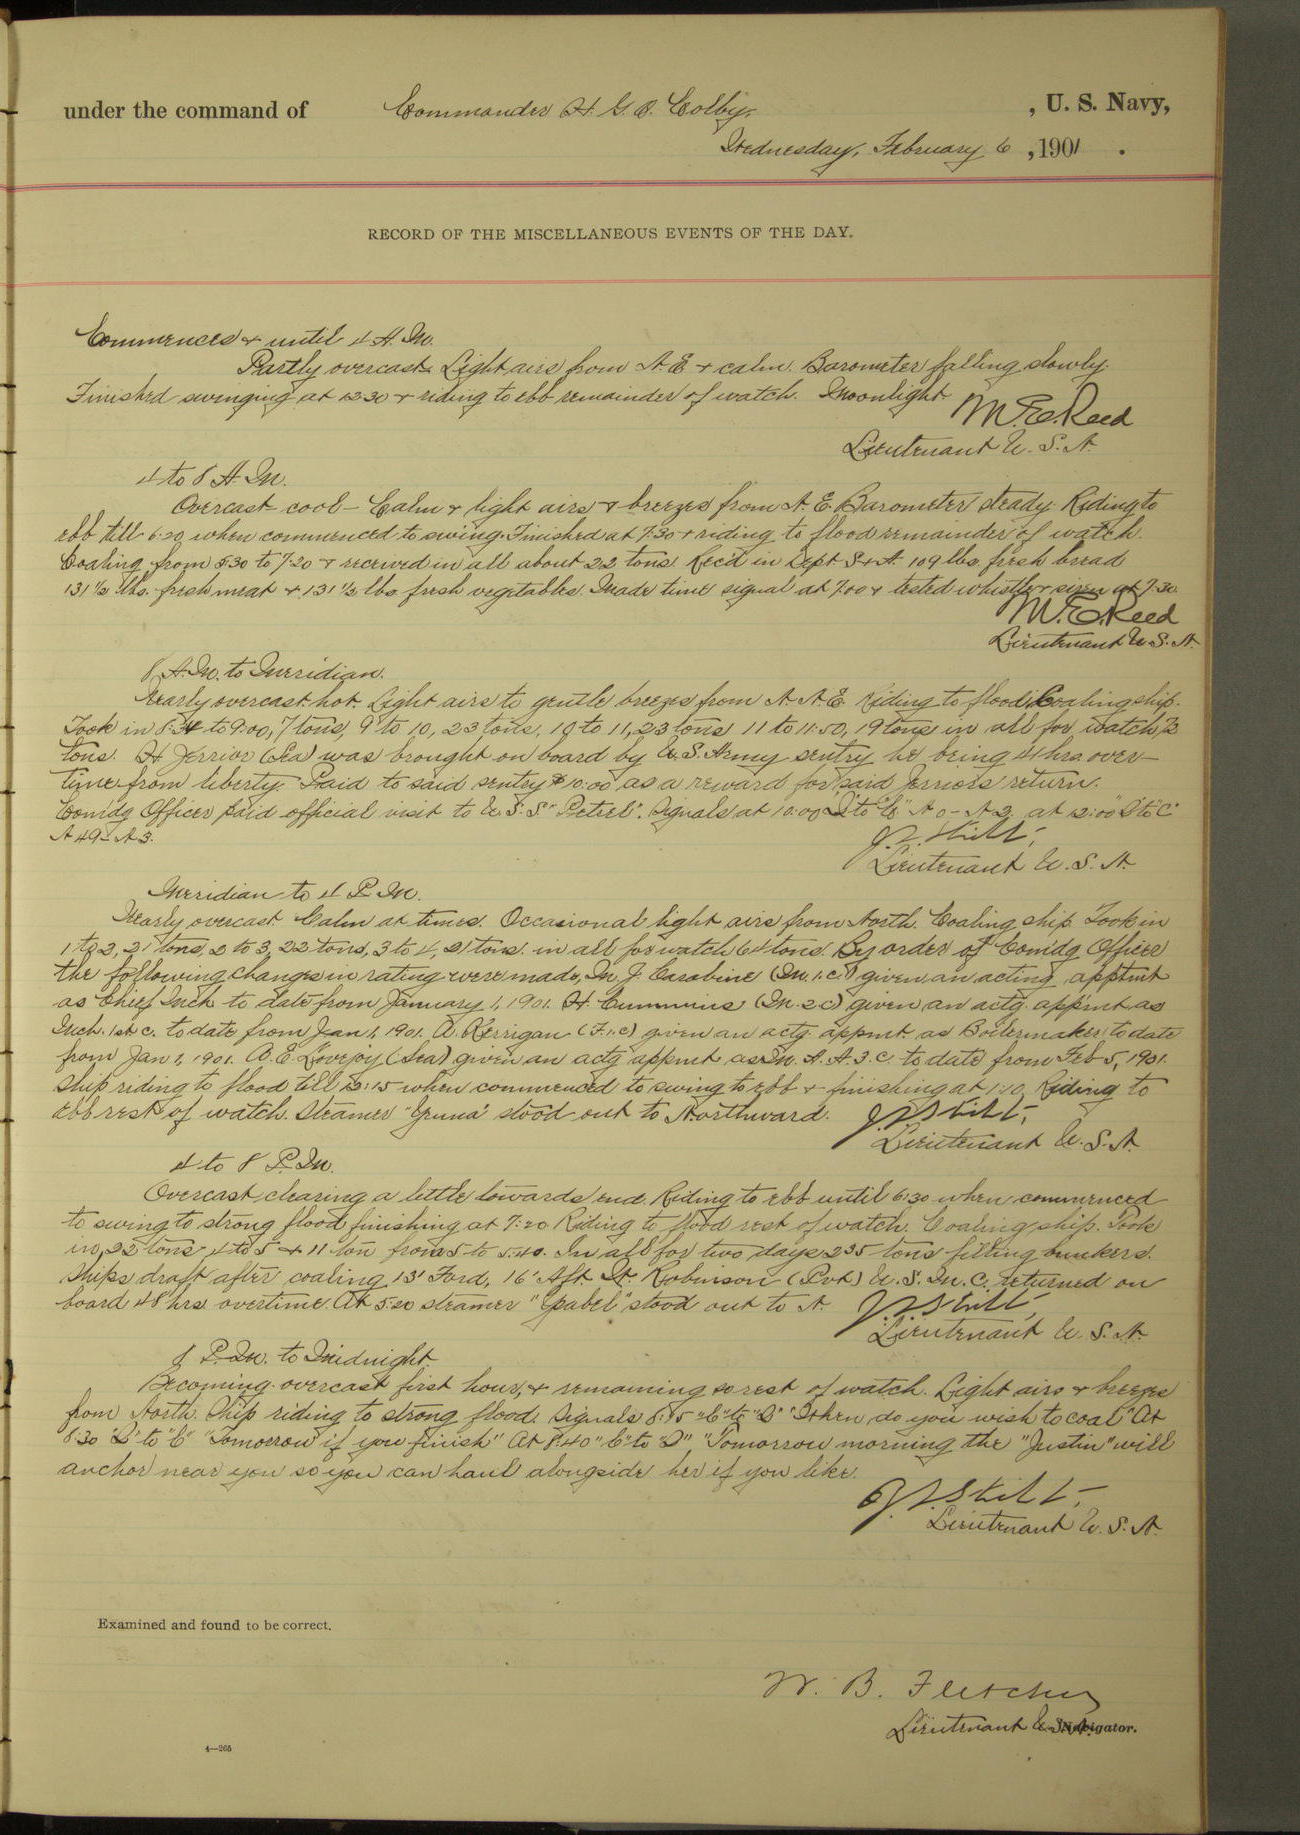 under the command of Commander H. G. O. Colby, , U. S. Navy,
Wednesday, February 6 , 1901 .
RECORD OF THE MISCELLANEOUS EVENTS OF THE DAY.
Commences + until 4 A.M.
Partly overcast. Light airs from N.E + calm. Barometer falling slowly.
Finished swinging at 12:30 + riding to ebb remainder of watch. Moonlight.
M.E. Reed
Lieutenant U.S.N.
4 to 8 A.M.
Overcast cool - Calm + light airs + breezes from N.E. Barometer steady. Riding to
ebb till 6:20 when commenced to swing. Finished at 7:30 + riding to flood remainder of watch.
Coaling from 5:30 to 7:20 + received in all about 22 tons. Rec'd in Dept S+A. 109 lbs fresh bread
131 1/2 lbs. fresh meat + 131 1/2 lbs fresh vegetables. Made time signal at 7:00 + tested whistle + siren at 7:30.
M.E. Reed
Lieutenant U.S.N.
8 A.M. to Meridian.
Nearly overcast hot. Light airs to gentle breezes from N.N.E. Riding to flood. Coaling ship.
Took in 8:34 to 9:00, 7 tons, 9 to 10, 23 tons, 10 to 11, 23 tons 11 to 11:50, 19 tons in all for watch 72
tons. H. Jerrior (Sea) was brought on board by U.S. Army sentry he being 41 hrs over-
time from liberty. Paid to said sentry $10:00 as a reward for said Jerriors return.
Comdg Officer paid official visit to U.S.S. "Petrel". Signals at 10:00 to A 0 - A 2. at 12:00 "D" to "C"
A 49 - A 3.
J.S. Stitt,
Lieutenant U.S.N.
Meridian to 4 P.M.
Nearly overcast. Calm at times. Occasional light airs from North. Coaling ship. Took in
1 to 2, 21 tons, 2 to 3, 22 tons, 3 to 4, 21 tons. in all for watch 64 tons. By order of Comdg Officer
the following changes in rating were made, M. J. Carabine (M.1.c) given an acting apptmt
as Chief Mach to date from January 1, 1901. H. Cummins (M.2c) given an actg. appmt as
Mach. 1st c. to date from Jan 1, 1901. A. Kerrigan (F.1.c) given an actg. appmt. as Boilermaker to date
from Jan 1, 1901. A.E. Lovejoy (Sea) given an actg appmt as M.A.A.3.c. to date from Feb 5, 1901.
Ship riding to flood till 12:15 when commenced to swing to ebb + finishing at 1:10. Riding to
ebb rest of watch. Steamer stood out to Northward. J.S. Stitt,
Lieutenant U.S.N.
4 to 8 P.M.
Overcast, clearing a little towards end. Riding to ebb until 6:30 when commenced
to swing to strong flood finishing at 7:20 Riding to flood rest of watch. Coaling ship. Took
in, 22 tons 4 to 5 + 11 ton from 5 to 5:40. In all for two days 235 tons filling bunkers.
Ships draft after coaling 13' Ford, 16' Aft. Robinson (Pvt) U.S.M.C. returned on
board 48 hrs overtime. At 5:20 steamer "Ysabel" stood out to N. J.S. Stitt,
Lieutenant U.S.N.
8 P.M. to Midnight
Becoming overcast first hour, + remaining so rest of watch. Light airs + breezes
from North. Ship riding to strong flood. Signals 8:15 "C" to "D" "When do you wish to coal" At
8:30 "D" to "C" "Tomorrow if you finish" At 8:40 "C" to "D", "Tomorrow morning the "Justin" will
anchor near you so you can haul alongside her if you like.
J.S. Stitt,
Lieutenant U.S.N.
Examined and found to be correct.
W. B. Fletcher
Lieutenant U.S.N. Navigator.
4—265